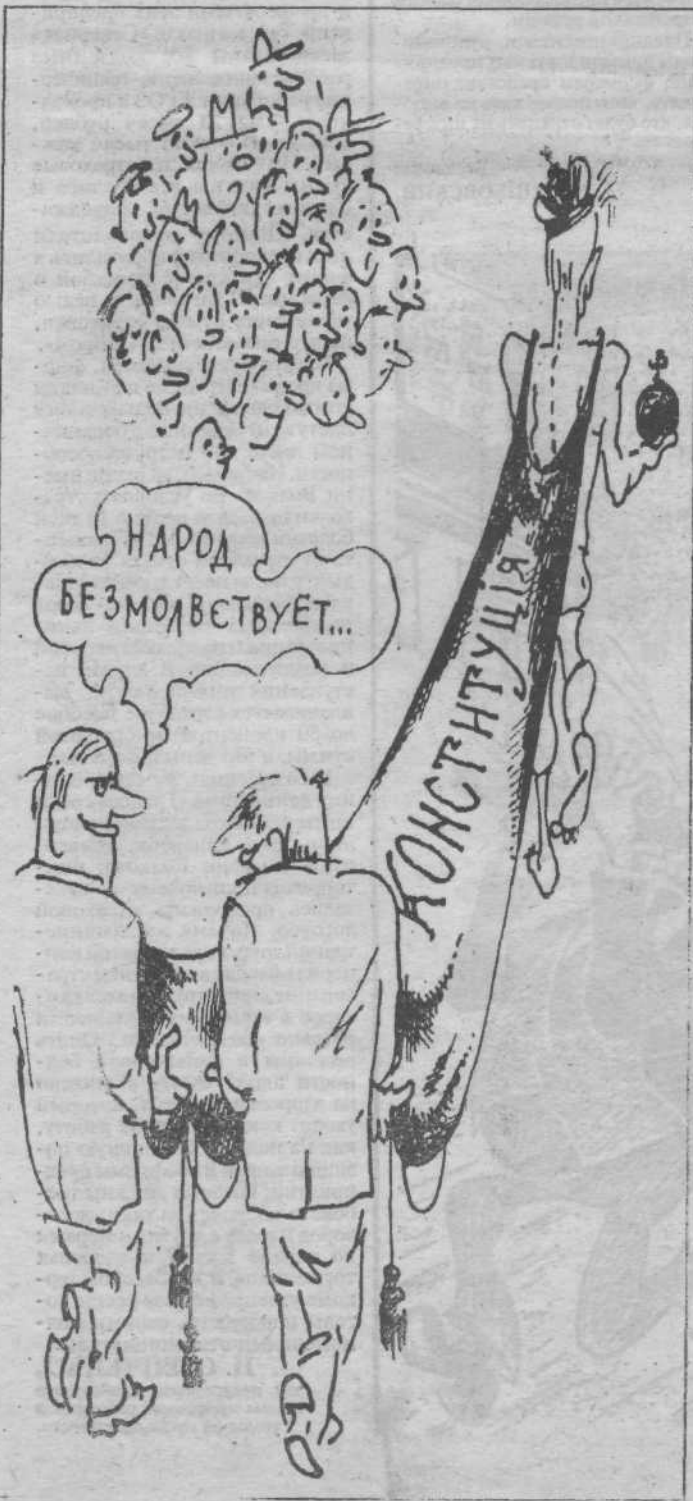 НАРОД
БЕЗМОЛВЄТВУЕТ...
КОНСТИТУЦІЯ